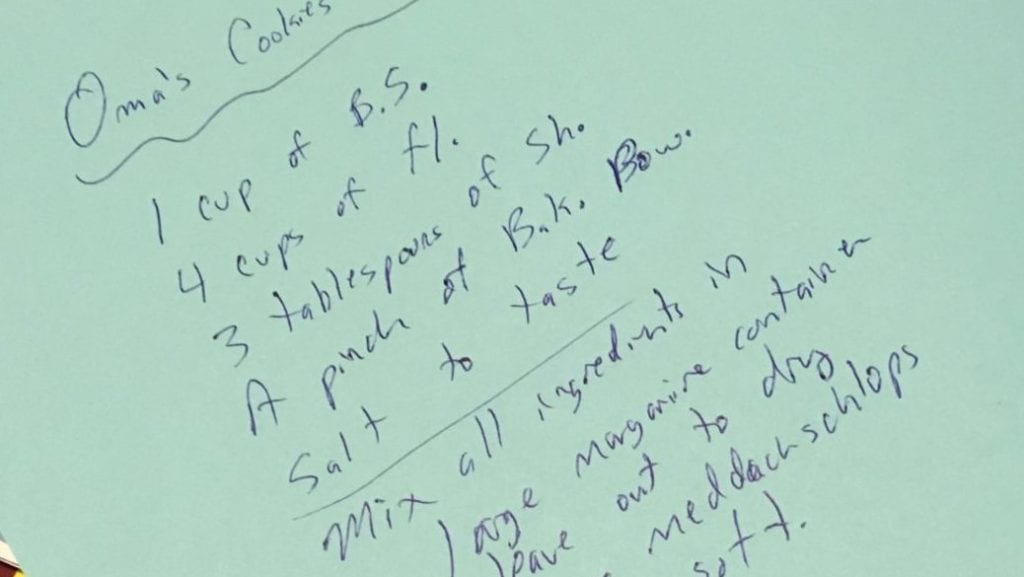 Oma's Cookies
1 cup of B.S.
4 cups of fl.
3 tablespoons of sh.
A pinch of Bak. Bow.
Salt to taste
Mix all ingredients in
large margarine container
leave out to dry
meddachschlops
soft.